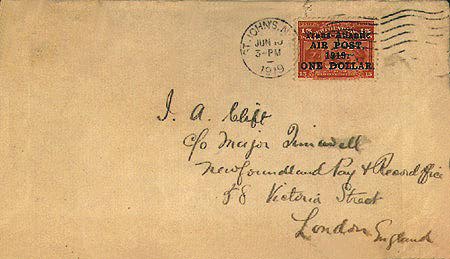 ST. JOHN'S, N
JUN
3-PM
1919
Trans-Atlantic
AIR POST,
1919.
ONE DOLLAR.
15 15
J. A. Clift
c/o Major Timewell
Newfoundland Pay & Record Office
58 Victoria Street
London England